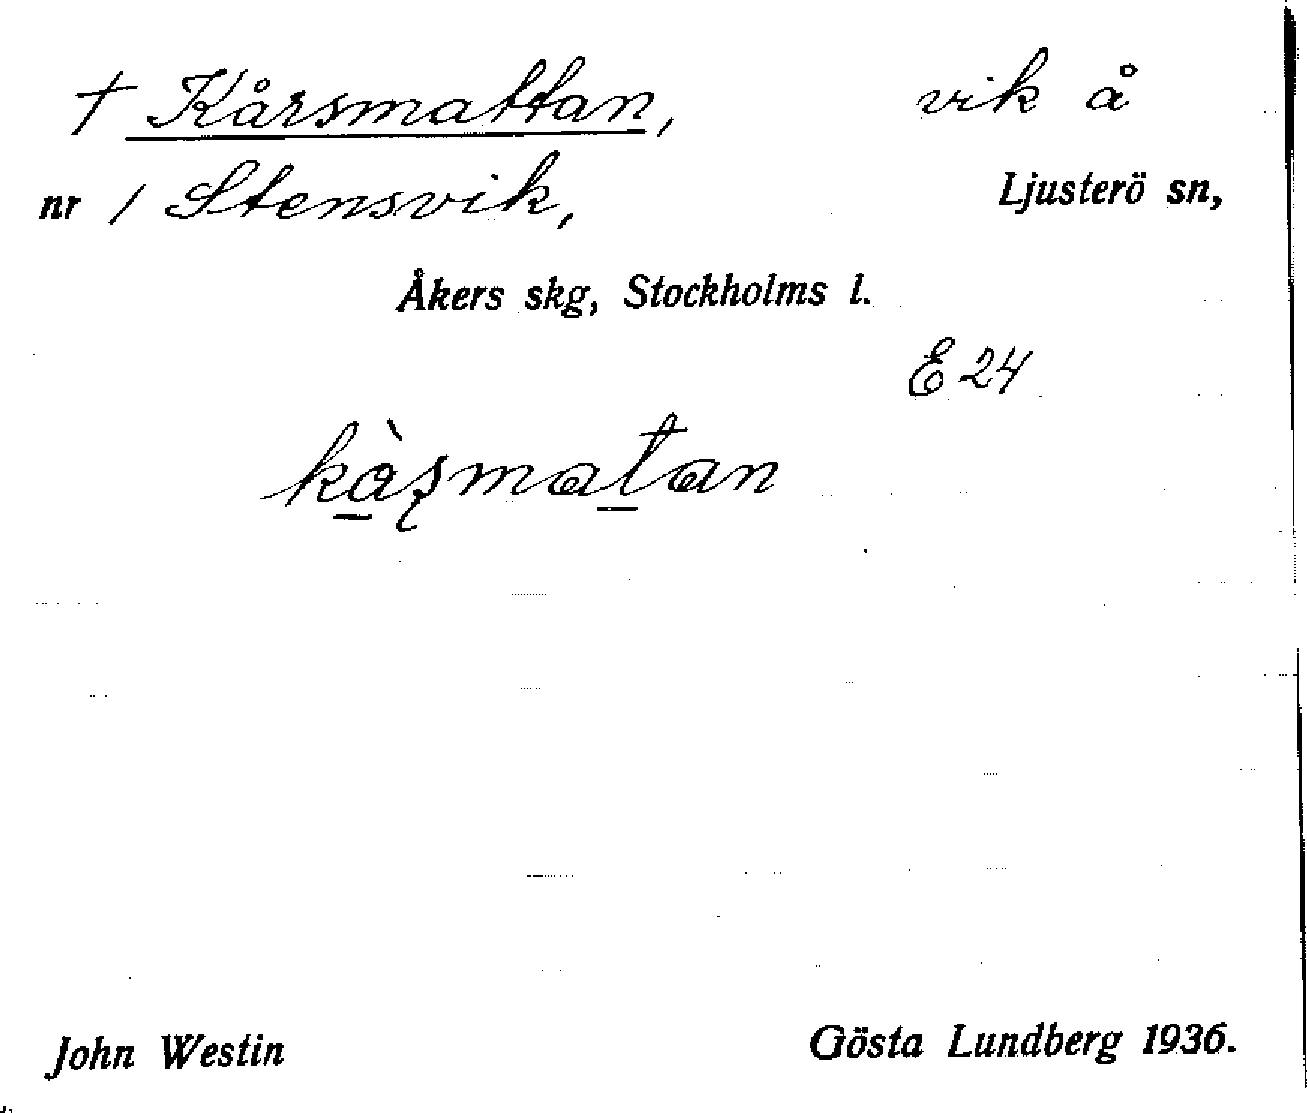 † Kårsmattan, vik å
nr 1 Stensvik, Ljusterö sn,
Åkers skg, Stockholms l.
E 24
kàʂmatan
John Westin Gösta Lundberg 1936.